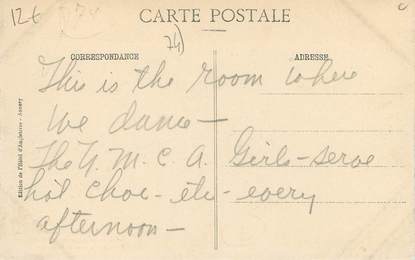 12€
74)
CARTE POSTALE
CORRESPONDANCE
ADRESSE
This is the room where
we dance—
The Y. M. C. A. Girls—serve
hot choc—etc—every
afternoon—
Edition de l'Hôtel d'Angleterre - Annecy